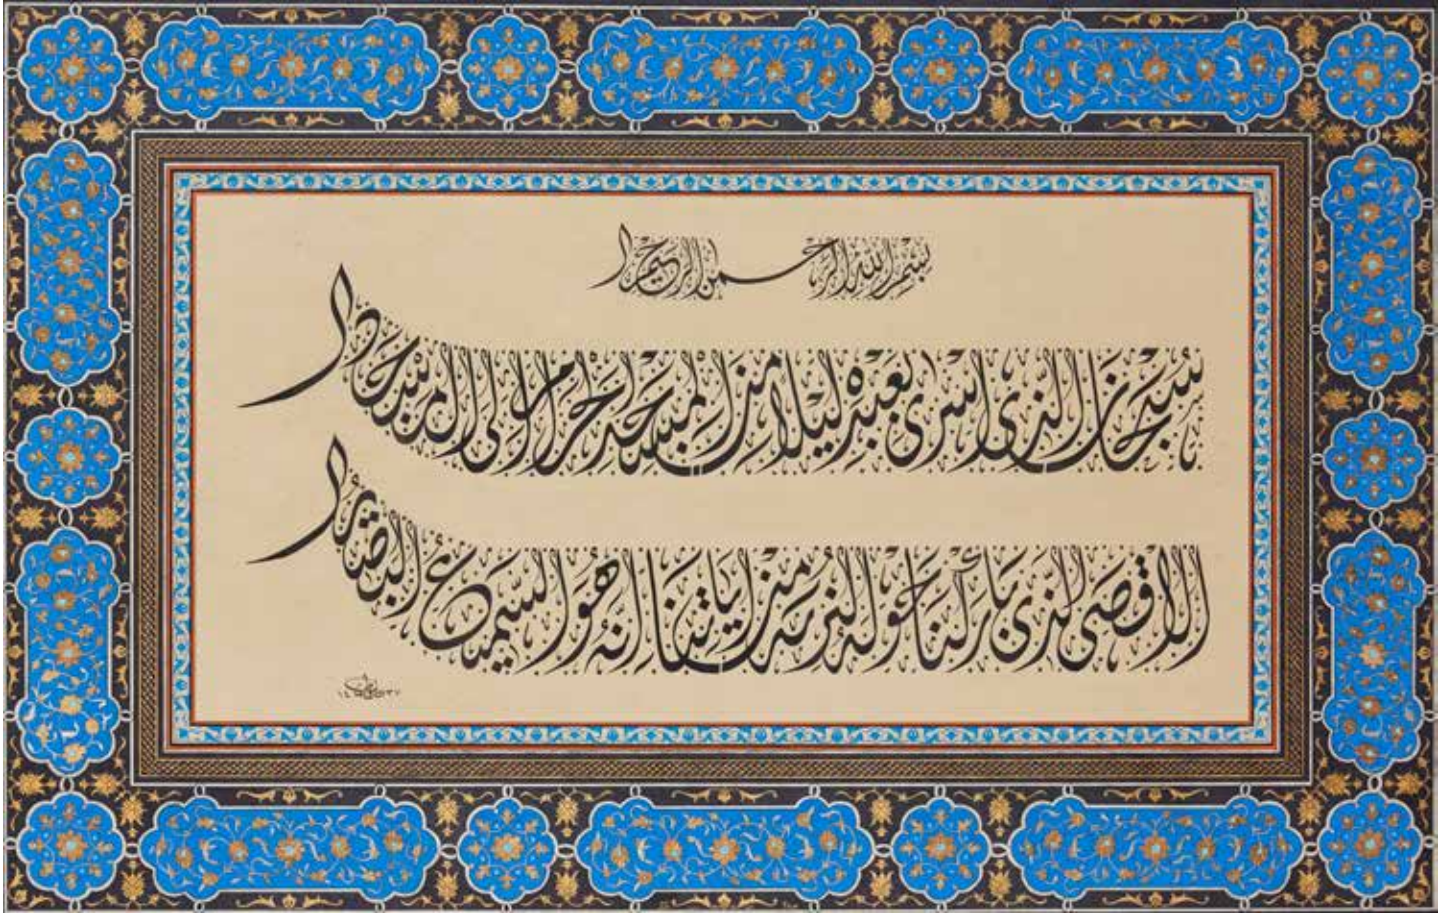 بسم الله الرحمن الرحيم
سبحان الذي اسرى بعبده ليلا من المسجد الحرام الى المسجد
الاقصى الذي باركنا حوله لنريه من اياتنا انه هو السميع البصير